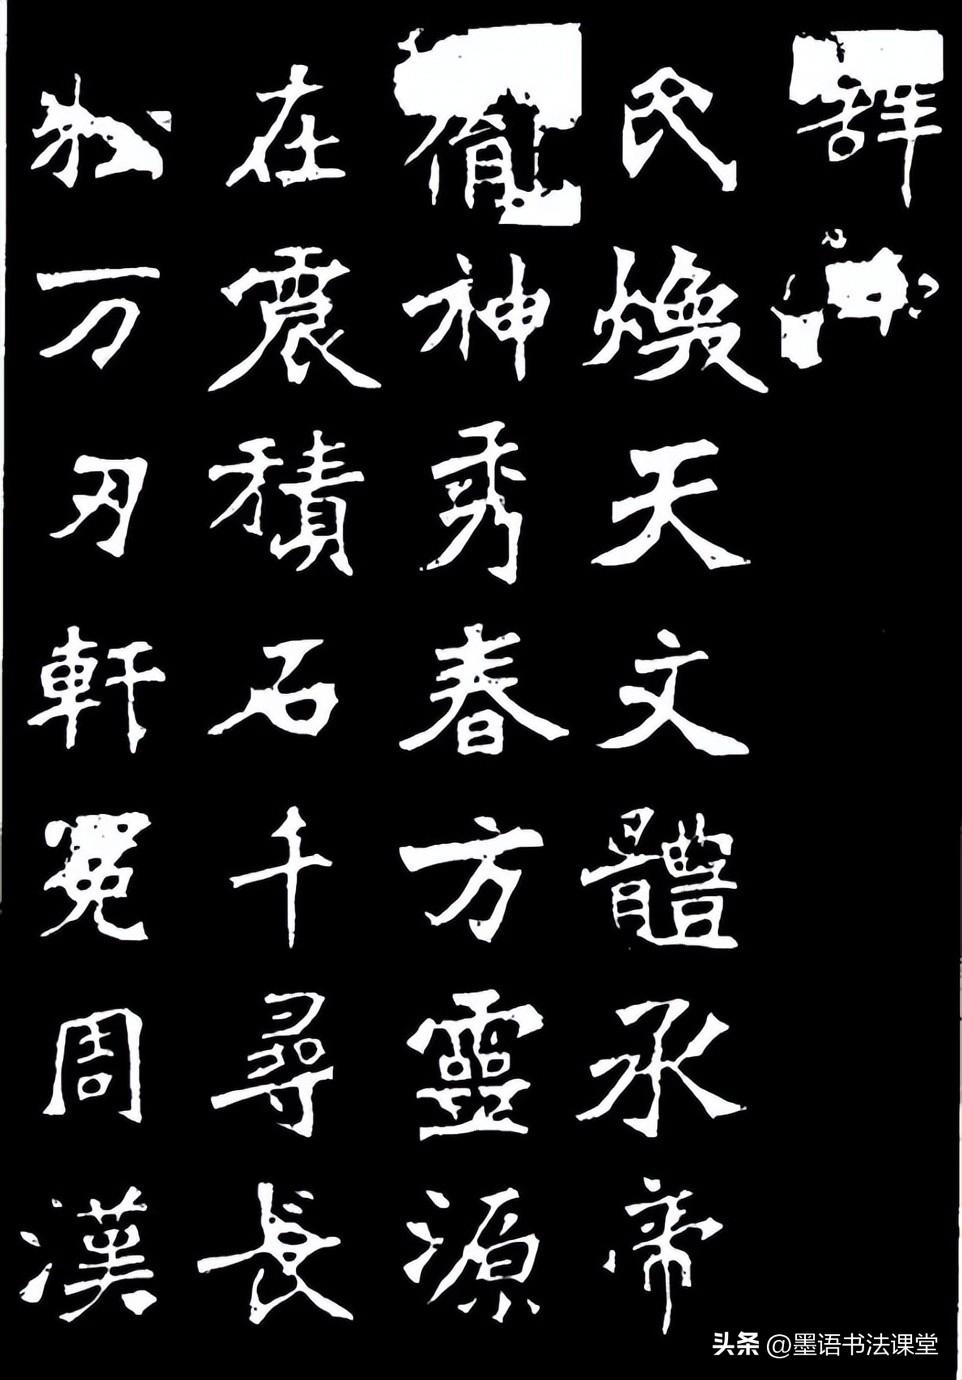 辞
氏煥天文體承帝
胤神秀春方靈源
在震積石千尋長
松万刃軒冕周漢
头条 @墨语书法课堂